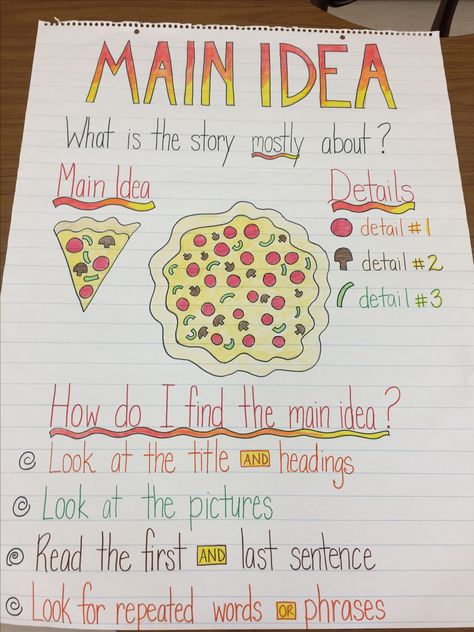 MAIN IDEA
What is the story mostly about?
Main Idea
Details
detail #1
detail #2
detail #3
How do I find the main idea?
Look at the title AND headings
Look at the pictures
Read the first AND last sentence
Look for repeated words OR phrases